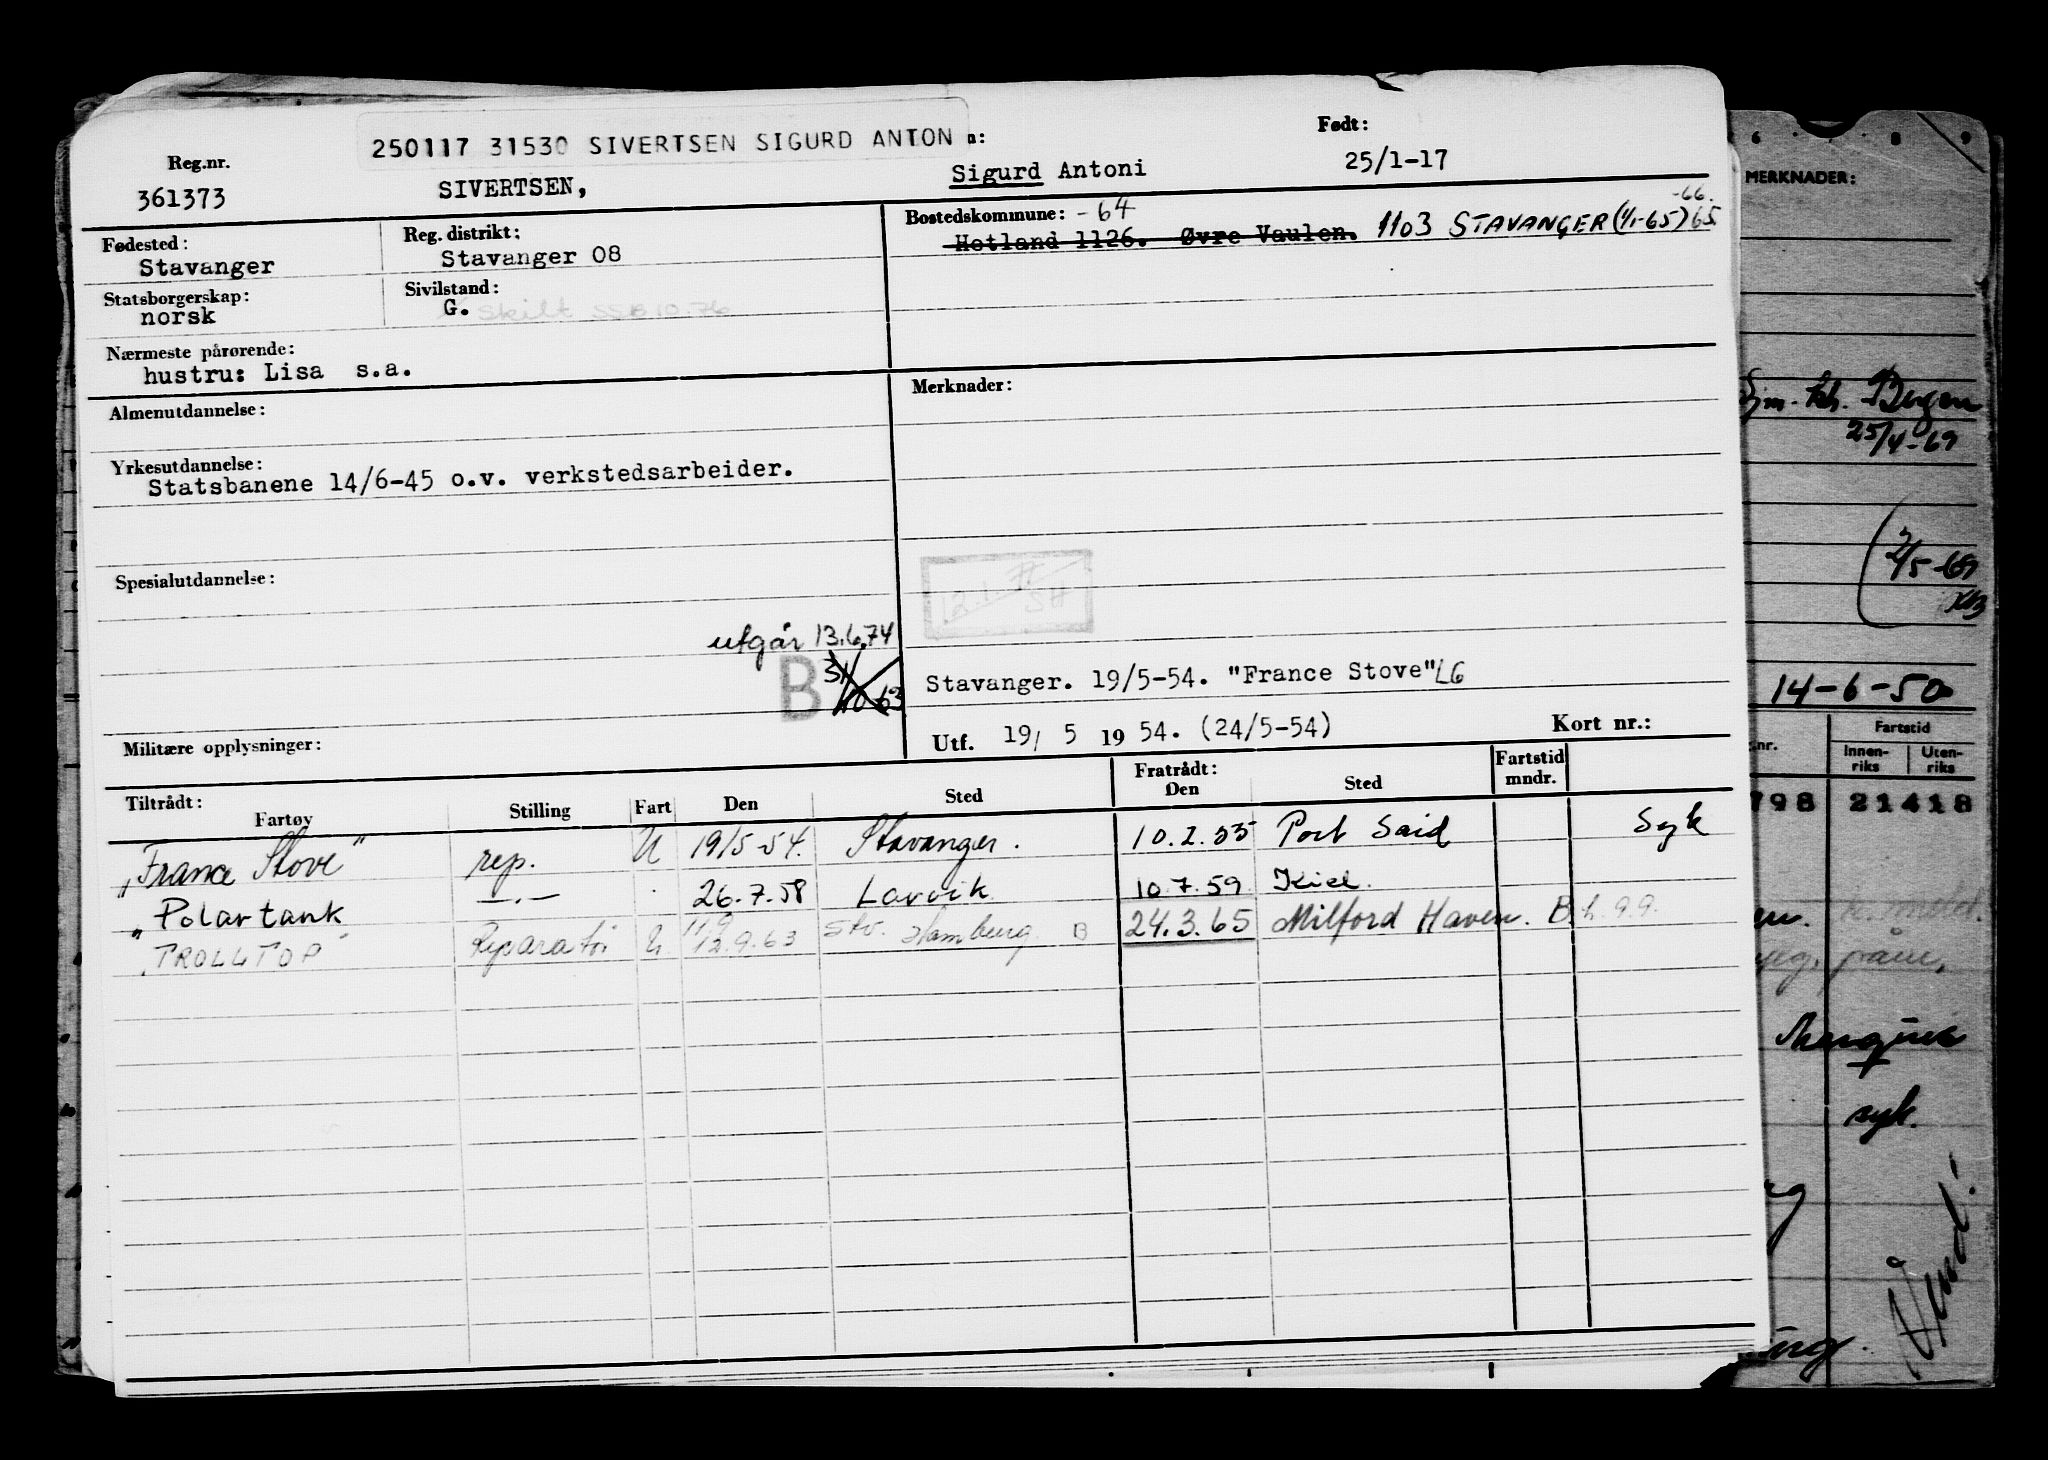 250117 31530 SIVERTSEN SIGURD ANTON n:
Født:
Reg.nr.
361373
SIVERTSEN,
Sigurd Antoni
25/1-17
Fødested:
Stavanger
Reg. distrikt:
Stavanger 08
Bostedskommune: -64
-66.
Hetland 1126. Øvre Vaulen. 1103 STAVANGER (1/1-65) 65
Statsborgerskap:
norsk
Sivilstand:
G. skilt SSB 10.76
Nærmeste pårørende:
hustru: Lisa s.a.
Almenutdannelse:
Merknader:
Yrkesutdannelse:
Statsbanene 14/6-45 o.v. verkstedsarbeider.
Spesialutdannelse:
utgår 13.6.74
B 31/10 63
Stavanger. 19/5-54. "France Stove" LG
Militære opplysninger:
Utf. 19/ 5 19 54. (24/5-54)
Kort nr.:
Tiltrådt:
Fartøy Stilling Fart Den Sted
Fratrådt:
Den Sted
Fartstid
mndr.
"France Stove" rep. U 19/5-54. Stavanger. 10.2.55 Port Said Syk
"Polartank" —.— 26.7.58 Larvik 10.7.59 Kiel.
"TROLLTOP" Reparatør U 11.9 12.9.63 Stv. Hamburg B 24.3.65 Milford Haven. B.h.9.9.
6 8 9
MERKNADER:
Sjm.-kh. Bergen
25/4-69
2/5-69
14-6-50
nr.
Fartstid
Innen-
riks
Uten-
riks
798 21418
syk.